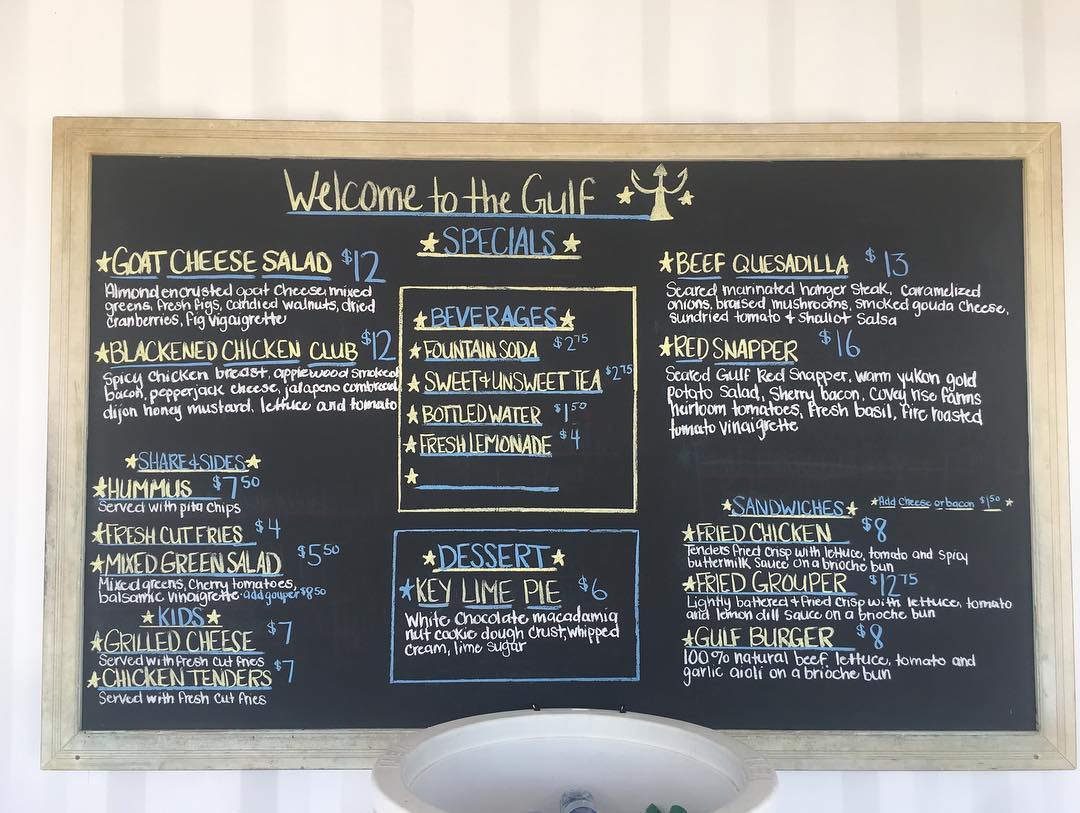 Welcome to the Gulf
SPECIALS
GOAT CHEESE SALAD $12
Almond encrusted goat cheese, mixed
greens, fresh figs, candied walnuts, dried
cranberries, fig vigaigrette
BLACKENED CHICKEN CLUB $12
Spicy chicken breast, applewood smoked
bacon, pepperjack cheese, jalapeno cornbread,
dijon honey mustard, lettuce and tomato
SHARE & SIDES
HUMMUS $7 50
Served with pita chips
FRESH CUT FRIES $4
MIXED GREEN SALAD $5 50
Mixed greens, cherry tomatoes,
balsamic vinaigrette • add grouper $8 50
KIDS
GRILLED CHEESE $7
Served with fresh cut fries
CHICKEN TENDERS $7
Served with fresh cut fries
BEVERAGES
FOUNTAIN SODA $2 75
SWEET & UNSWEET TEA $2 75
BOTTLED WATER $1 50
FRESH LEMONADE $4
DESSERT
KEY LIME PIE $6
White chocolate macadamia
nut cookie dough crust, whipped
cream, lime sugar
BEEF QUESADILLA $13
Seared marinated hanger steak, caramelized
onions, braised mushrooms, smoked gouda cheese,
sundried tomato & shallot salsa
RED SNAPPER $16
Seared Gulf Red Snapper, warm yukon gold
potato salad, sherry bacon, Covey rise farms
heirloom tomatoes, fresh basil, fire roasted
tomato vinaigrette
SANDWICHES
Add cheese or bacon $1 50
FRIED CHICKEN $8
Tenders fried crisp with lettuce, tomato and spicy
buttermilk sauce on a brioche bun
FRIED GROUPER $12 75
Lightly battered & fried crisp with lettuce, tomato
and lemon dill sauce on a brioche bun
GULF BURGER $8
100% natural beef, lettuce, tomato and
garlic aioli on a brioche bun